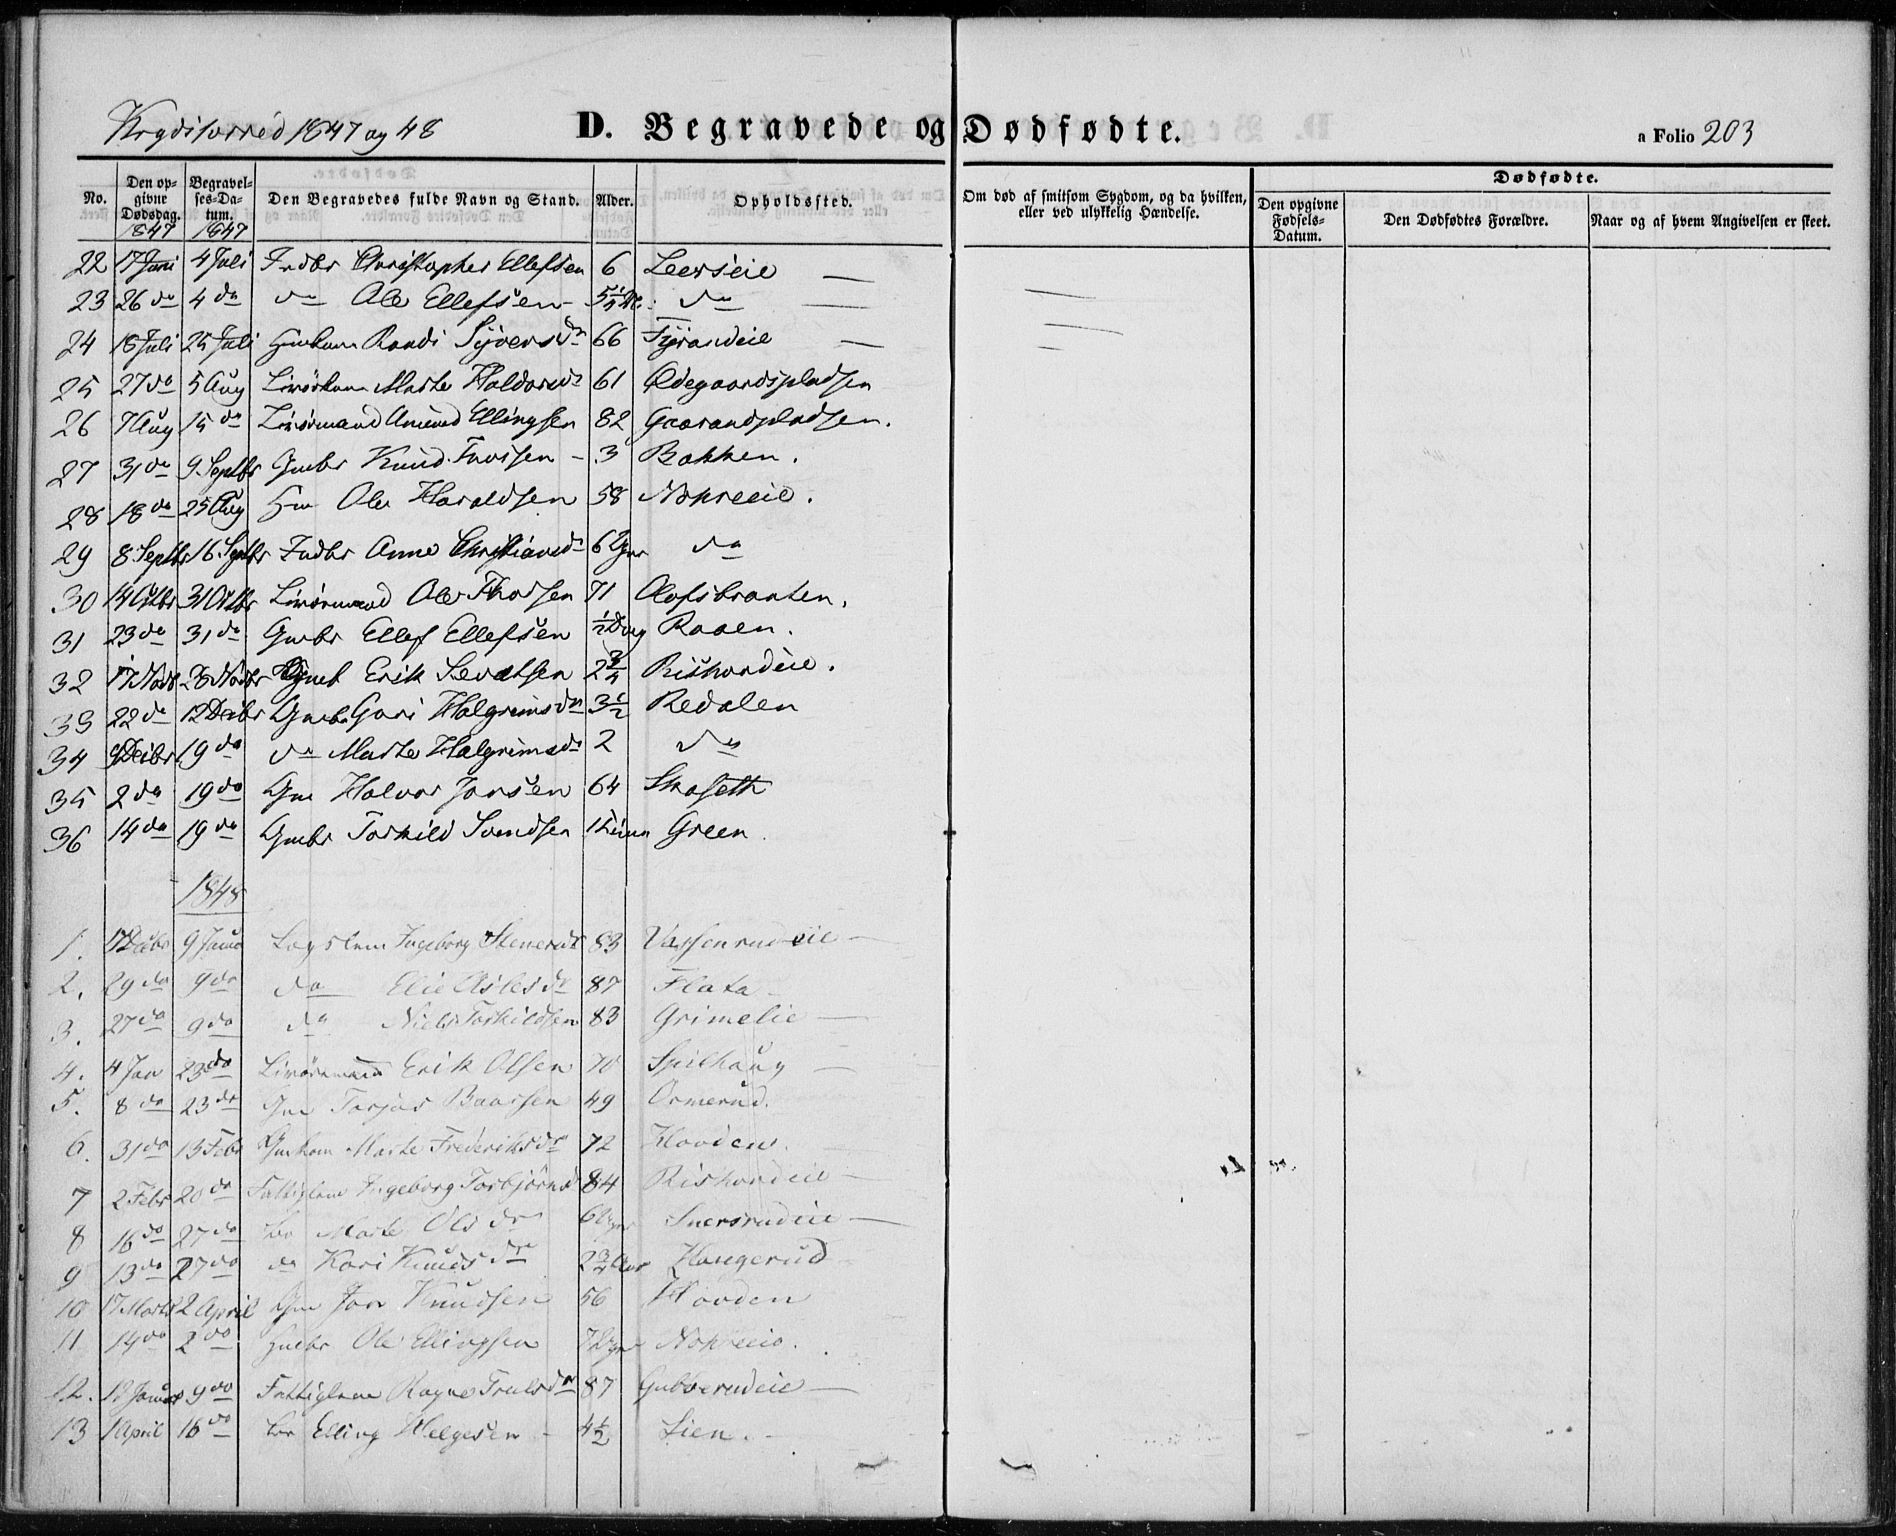 Krydsherred 1847 og 48
D. Begravede og Dødfødte.
a Folio 203
No. Den opgivne Dødsdag. Begravelses-Datum. Den Begravedes fulde Navn og Stand. Alder. Opholdssted. Om død af smitsom Sygdom, og da hvilken, eller ved ulykkelig Hændelse. Dødfødte. Den opgivne Fødsels-Datum. Den Dødfødtes Forældre. Naar og af hvem Angivelsen er skeet.
1847 1847
22 17 Juni 4 Juli Indbr Christopher Ellefsen 6 Leerseie
23 26 do 4 do do Ole Ellefsen 5¼ do
24 18 Juli 25 Juli Randi Syversdr 66 Fyrandeie
25 27 do 5 Aug Marte Haldorsdr 61 Ødegaardspladsen
26 7 Aug 15 do Amund Ellingsen 82 Gaarandpladsen.
27 31 do 9 Septbr Gmbr Knud 3 Bakken.
28 18 do 25 Aug Hm Ole Haraldsen 58 Nokreeie.
29 8 Septbr 16 Septbr Indbr Anne Christiansdr 6 do
30 14 Octbr 31 Octbr Ole Thorsen 71 Olofsbraaten.
31 23 do 31 do Gmbr Ellef Ellefsen ½ Dag Raaen.
32 17 28 Erik Sevatsen 2¾ Riskandeie.
33 22 do 12 Decbr Gmbr Guri Halgrimsdr 3½ Redalen
34 9 Decbr 19 do do Marte Halgrimsdr 2 do
35 2 do 19 do Gm Halvor Jonsen 64 Skaseth
36 14 do 19 do Gmbr Torkild Svendsen 1 Green
1848
1. 17 Decbr 9 Ingeborg 83 Vassenrudeie
2. 29 do 9 do do Elie Aslesdr 87 Flata
3. 27 do 9 do do Niels Torkildsen 83 Grimelie
4. 4 Jan 23 do Erik Olsen 70 Spilhaug
5. 8 do 23 do Gm Torjus Baarsen 49 Ormerud.
6. 31 do 13 Febr Marte Frederiksdr 72 Hovden.
7 2 Febr 20 do Ingeborg Torbjørnsd 84 Riskandeie
8 16 do 27 do Marte Olsdr 6 Snersrudeie
9 13 do 27 do do Kari Knudsdr 2¾ Haugerud
10 17 Marts 2 April Gm Knudsen 56 Hovden
11 14 do 2 do Ole Ellingsen 7 Nokreeie.
12. 9 do Ragne Trulsdr 87 Gubberudeie
13 1 April 16 do Elling Helgesen 4½ Lien.